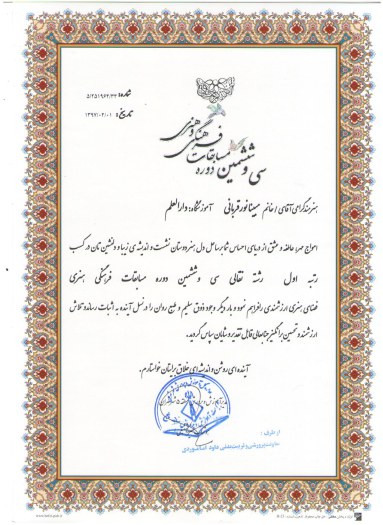 شماره: ۵/۲۵۱۹۶۴/۳۳
تاریخ: ۱۳۹۷/۰۲/۰۱
سی و ششمین دوره
مسابقات
فرهنگی و هنری
هنرمند گرامی آقای / خانم مبینا نورقربانی آموزشگاه: دارالعلم
امواج مهر، عاطفه و عشق از دریای احساس شما بر ساحل دل هنردوستان نشست و اندیشه ی زیبا و دلنشین تان در کسب
رتبه اول رشته نقالی سی و ششمین دوره مسابقات فرهنگی هنری
فضای هنری ارزشمندی را فراهم نمود و بار دیگر وجود ذوق سلیم و طبع روان را در نسل آینده به اثبات رساند و تلاش
ارزشمند و تحسین برانگیز جنابعالی قابل تقدیر و شایان سپاس گردید.
آینده ای روشن و اندیشه ای خلاق برایتان خواستارم.
از طرف:
معاونت پرورشی و تربیت بدنی داود